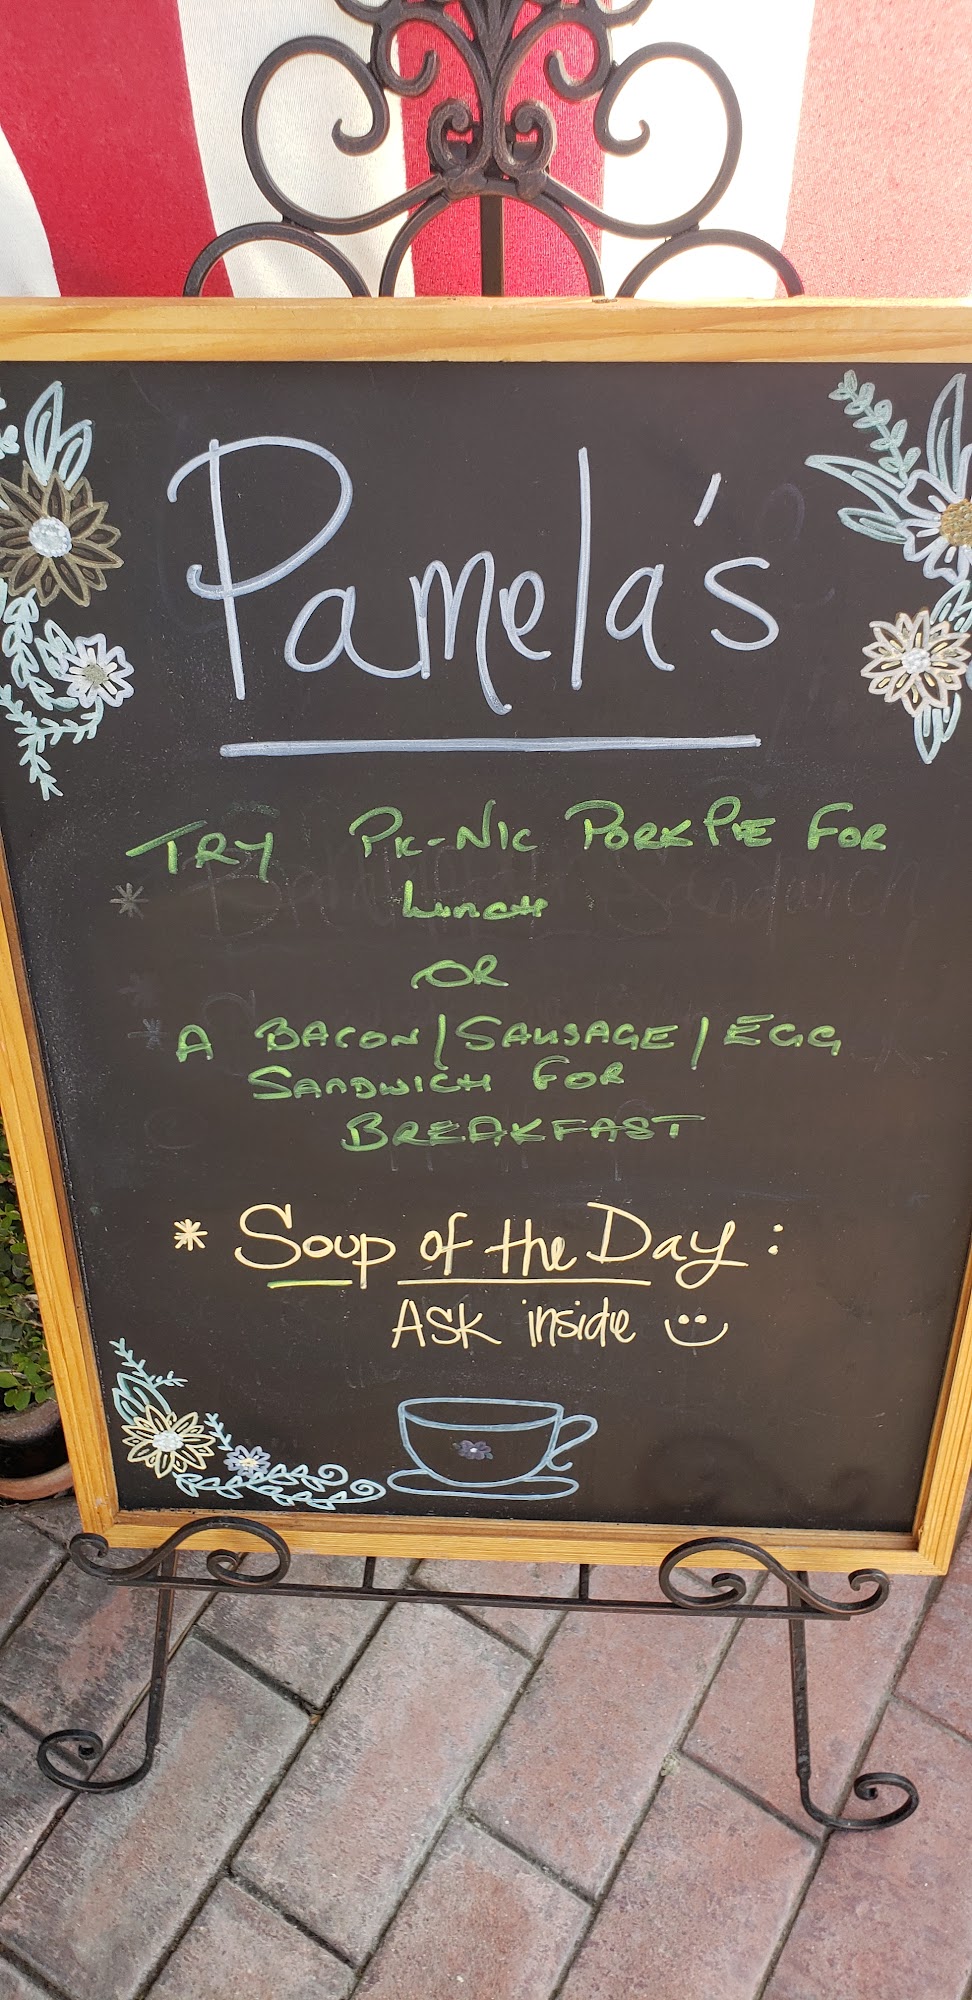 Pamela's
TRY PIC-NIC PORK PIE FOR
LUNCH
OR
A BACON/SAUSAGE/EGG
SANDWICH FOR
BREAKFAST
* Soup of the Day:
ASK inside